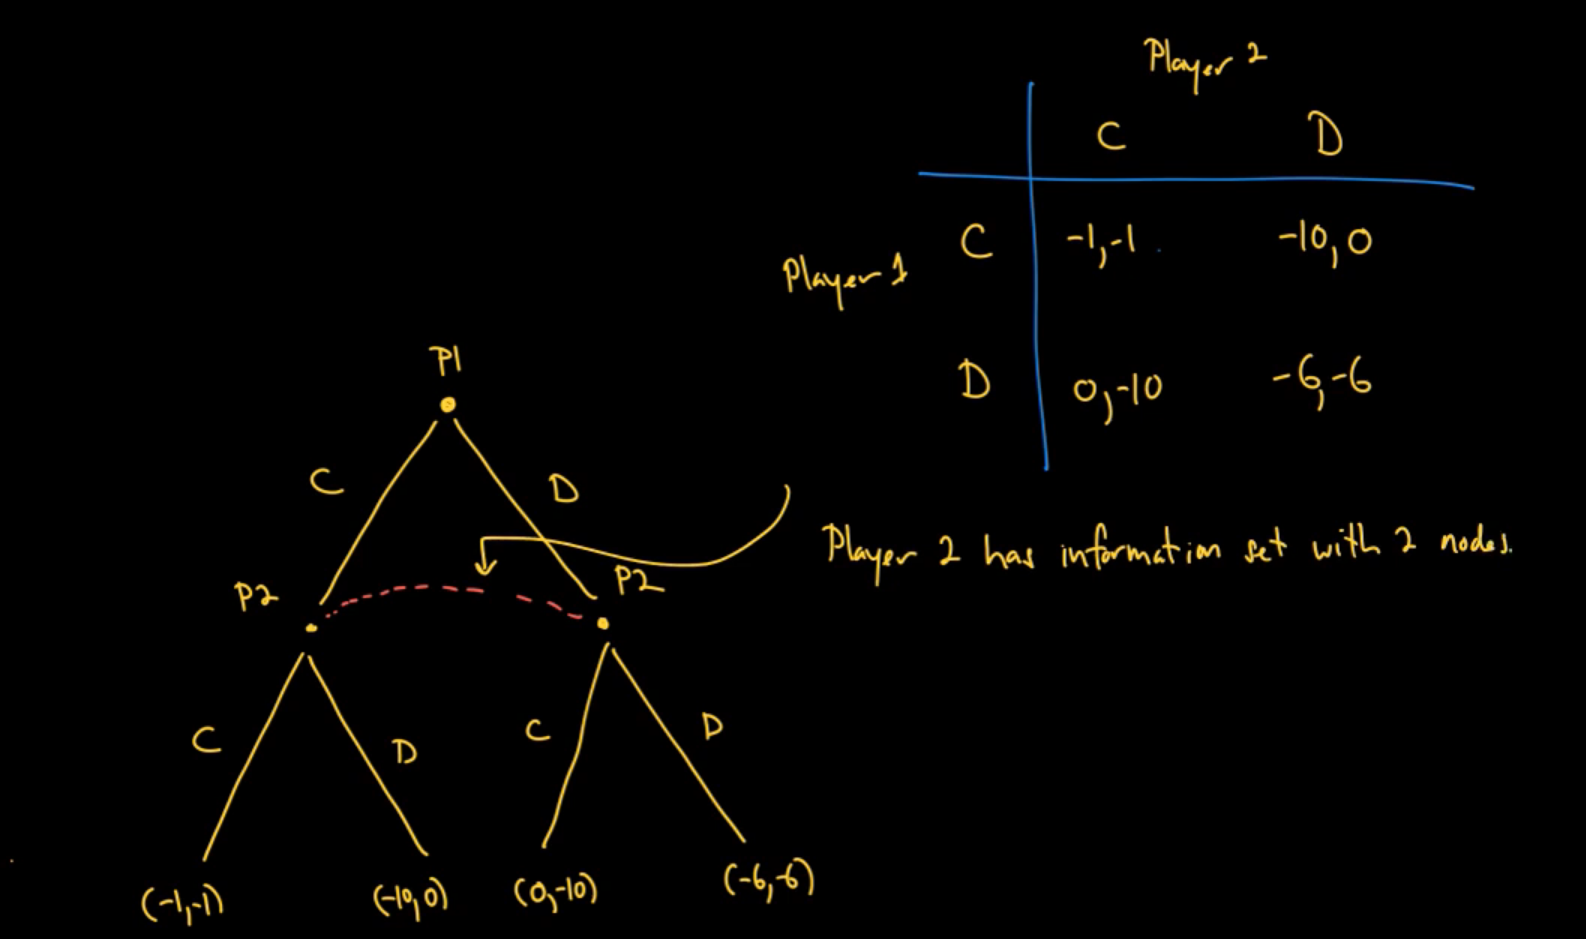 Player 2
C D
Player 1 C -1,-1 -10,0
D 0,-10 -6,-6
P1
C D
Player 2 has information set with 2 nodes.
P2 P2
C D C D
(-1,-1) (-10,0) (0,-10) (-6,-6)